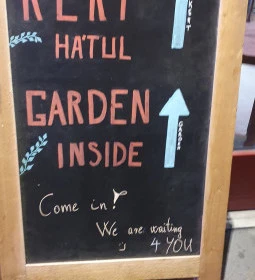 KERT
HÁTUL
GARDEN
GARDEN
INSIDE
Come in!
We are waiting
:) 4 YOU